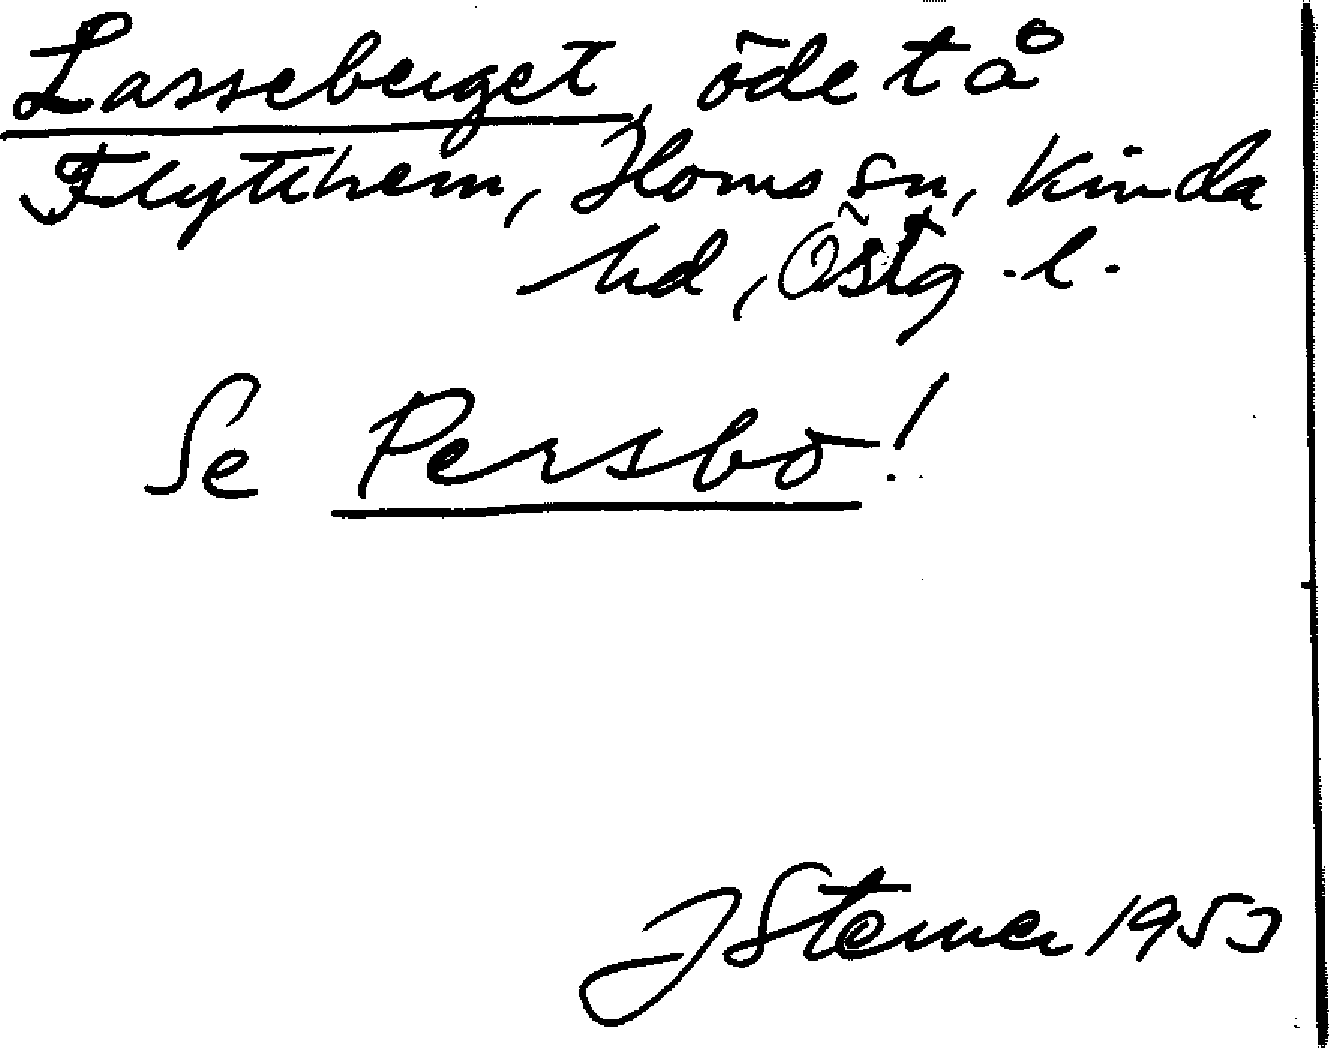 Lasseberget, öde t å
Flytthem, Horns sn, Kinda
hd, Östg.l.
Se Persbo!
J Sterner 1953